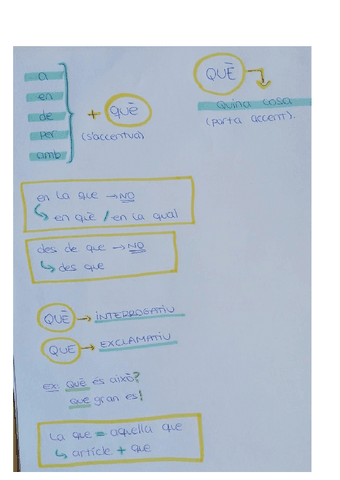 a
en
de
per
amb
+ què
(s'accentua)
QUÈ
Quina cosa
(porta accent).
en la que → NO
en què / en la qual
des de que → NO
des que
QUÈ → INTERROGATIU
QUE → EXCLAMATIU
EX: QUÈ és això?
QUE gran es!
La que = aquella que
article + que